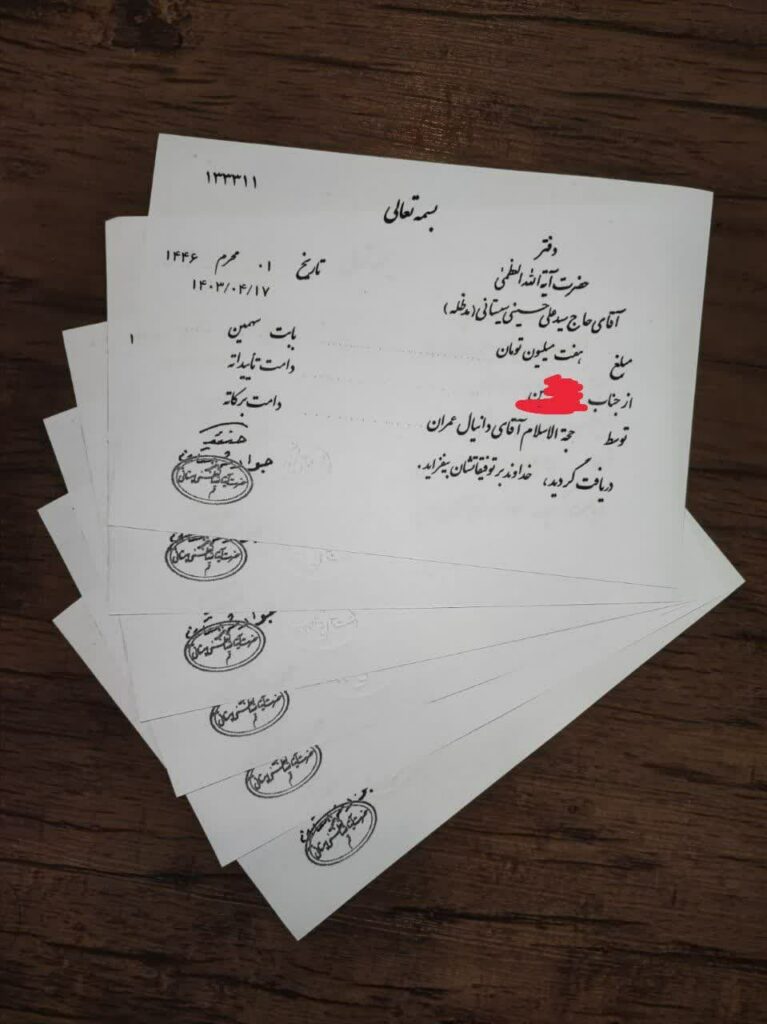 ۱۳۳۳۱۱
بسمه تعالی
دفتر
حضرت آیة الله العظمی
آقای حاج سید علی حسینی سیستانی (مدظله)
تاریخ ۰۱ محرم ۱۴۴۶
۱۴۰۳/۰۴/۱۷
مبلغ هفت میلیون تومان بابت سهمین
از جناب دامت تاییداته
توسط حجة الاسلام آقای دانیال عمران دامت برکاته
دریافت گردید، خداوند بر توفیقاتشان بیفزاید.